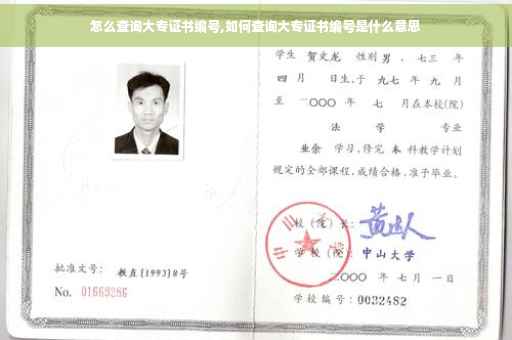 怎么查询大专证书编号,如何查询大专证书编号是什么意思
学生 贺文龙 性别 男 、七三 年
四 月 日生,于 九七 年 九 月
至 二〇〇〇 年 七 月在本校(院)
法 学 专业
业余 学习,修完 本 科教学计划
规定的全部课程,成绩合格,准予毕业。
校(院)长:
学校(院): 中山大学
二〇〇〇 年 七 月 一 日
学校编号: 0032482
批准文号: 教直[1993]8号
No. 01669286